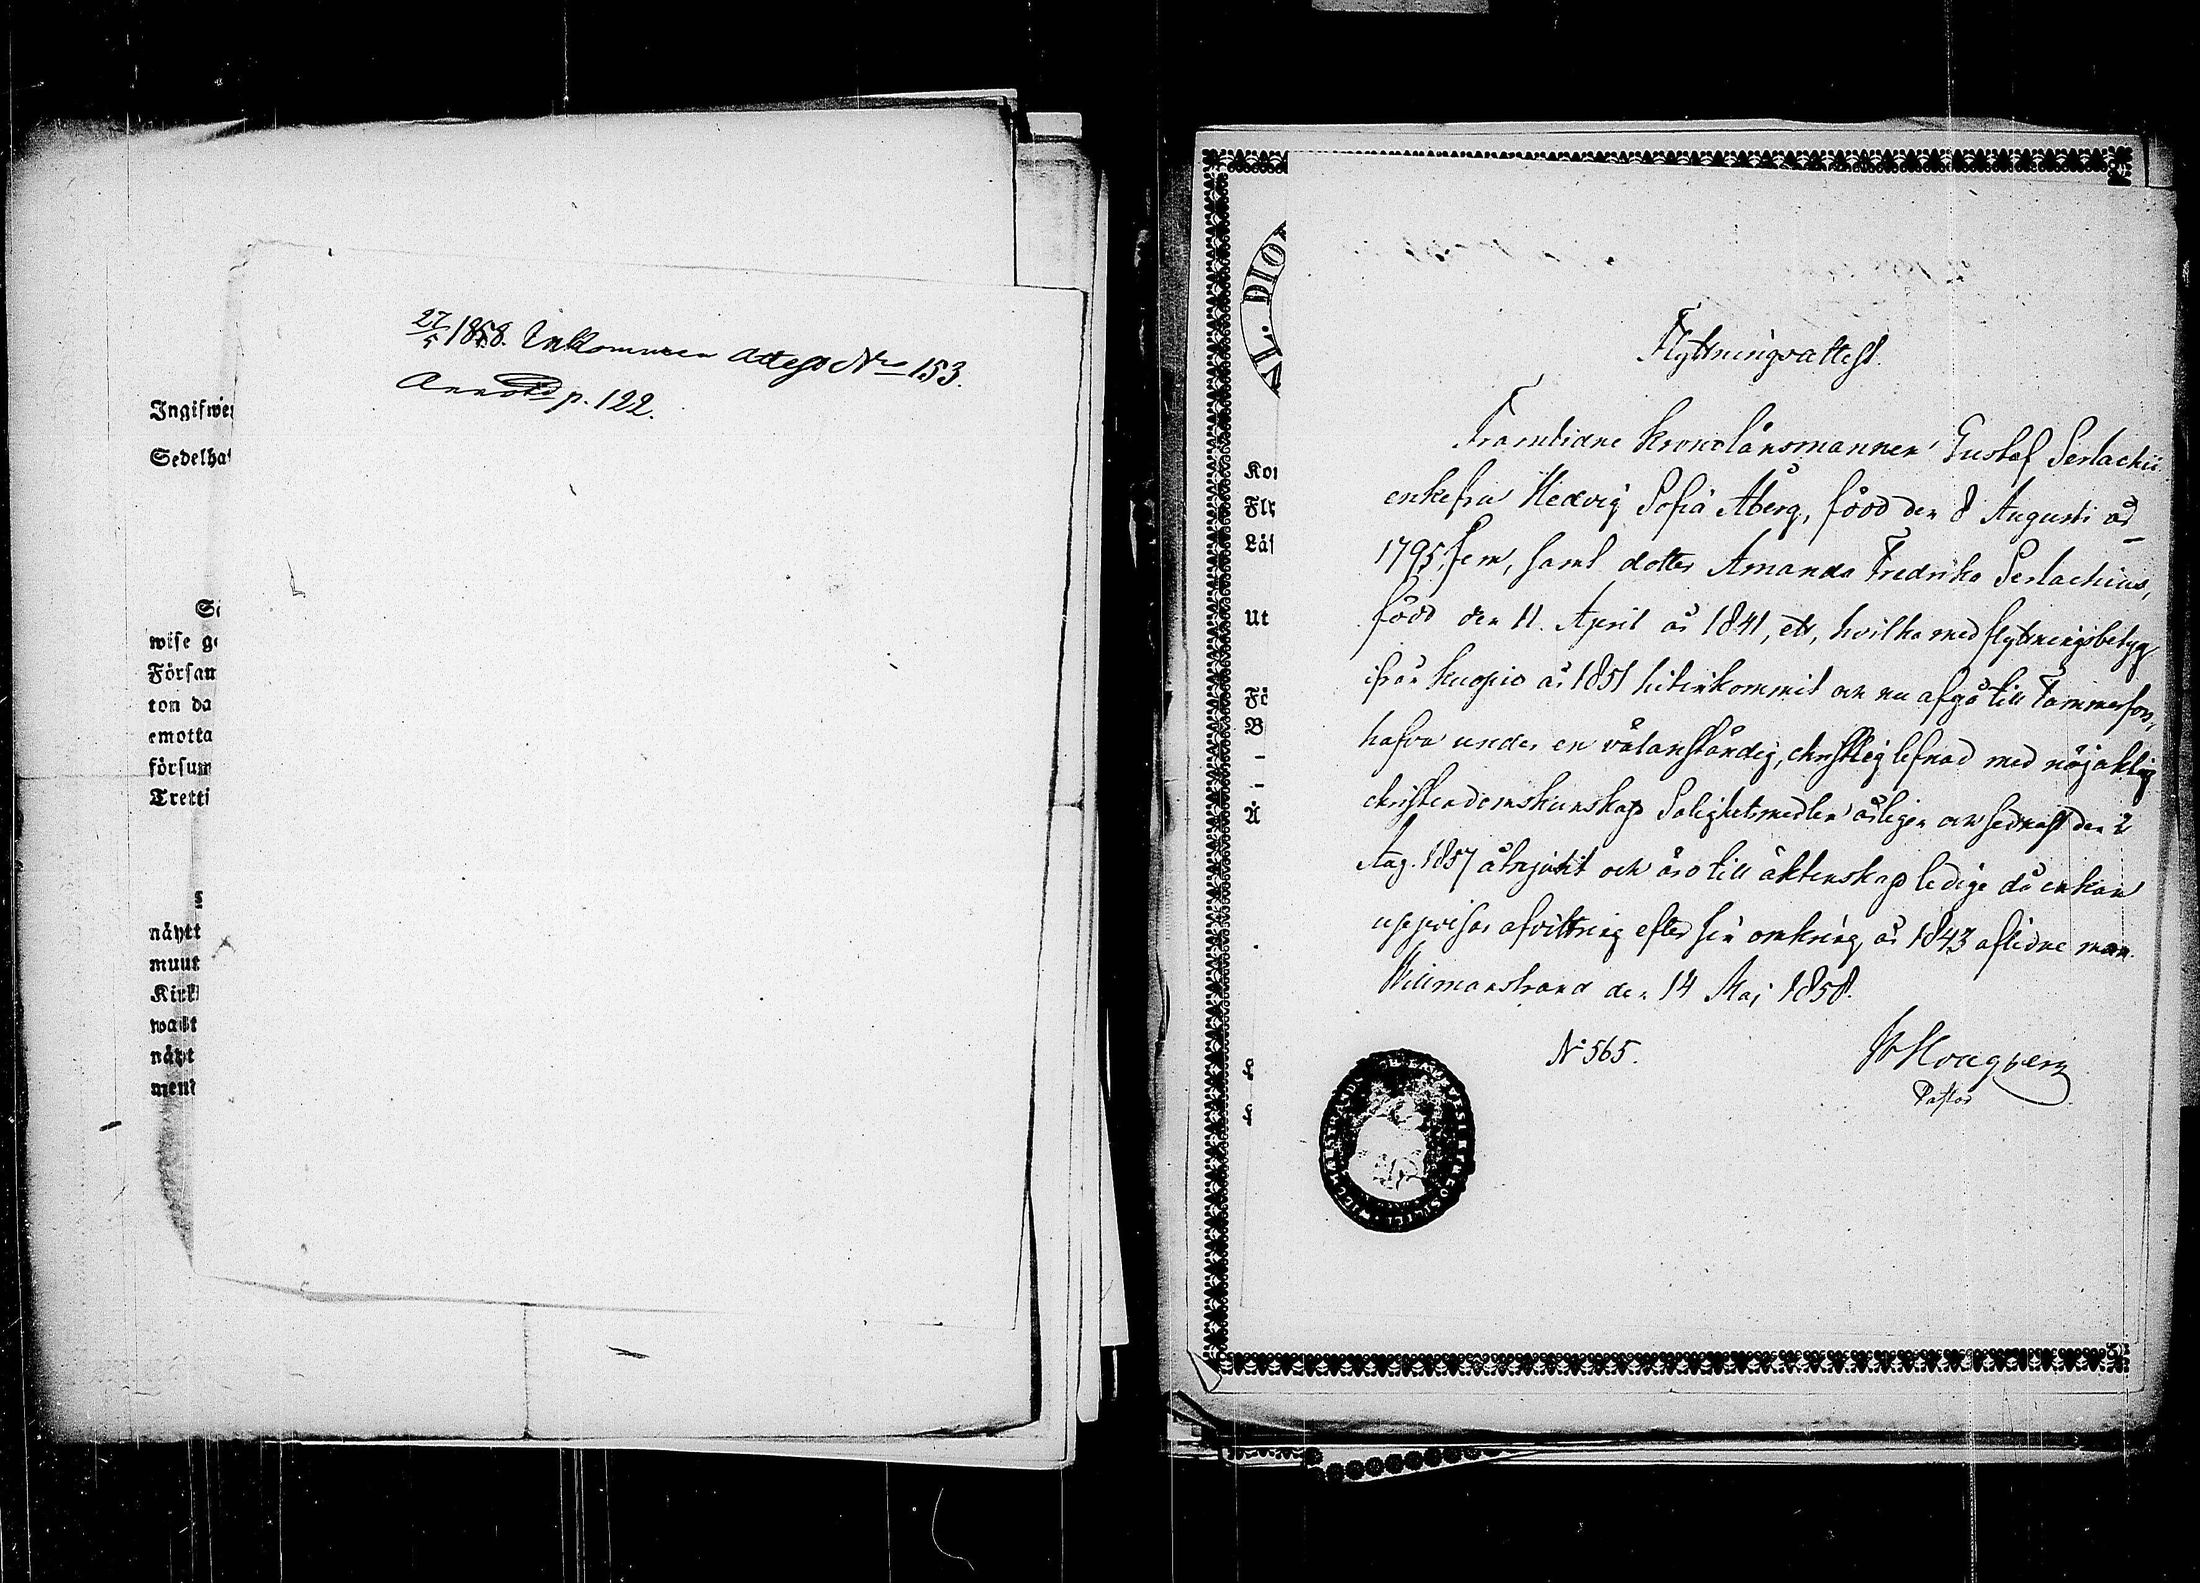 27/5 1858. Inkommen Attest No 153.
Annotd p. 122.
Ingifwe
Sedelha
wise ge
Försam
ton da
emotta
försum
Tretti
näytt
muut
Kirk
näyt
ment
VL. DIO
Flyttningsattest.
Framlidne kronolänsmannen Gustaf Serlachii
enkefru Hedvig Sofia Åberg, född den 8 Augusti år
1795, fem, samt dotter Amanda Fredrika Serlachius,
född den 11 April år 1841, ett, hvilka med flyttningsbetyg
ifrån Kuopio år 1851 hitinkommit och nu afgå till Tammerfors,
hafva under en välanständig, christlig lefnad med nöjaktig
christendomskunskap Salighetsmedlen årligen och sednast den 2
Aug. 1857 åtnjutit och äro till äktenskap ledige då enkan
uppvisar afvittring efter sin omkring år 1843 aflidne man.
Willmanstrand den 14 Maj 1858.
No 565.
Pastor
Kor
Fly
Läs
Ut
Fö
B
Ä